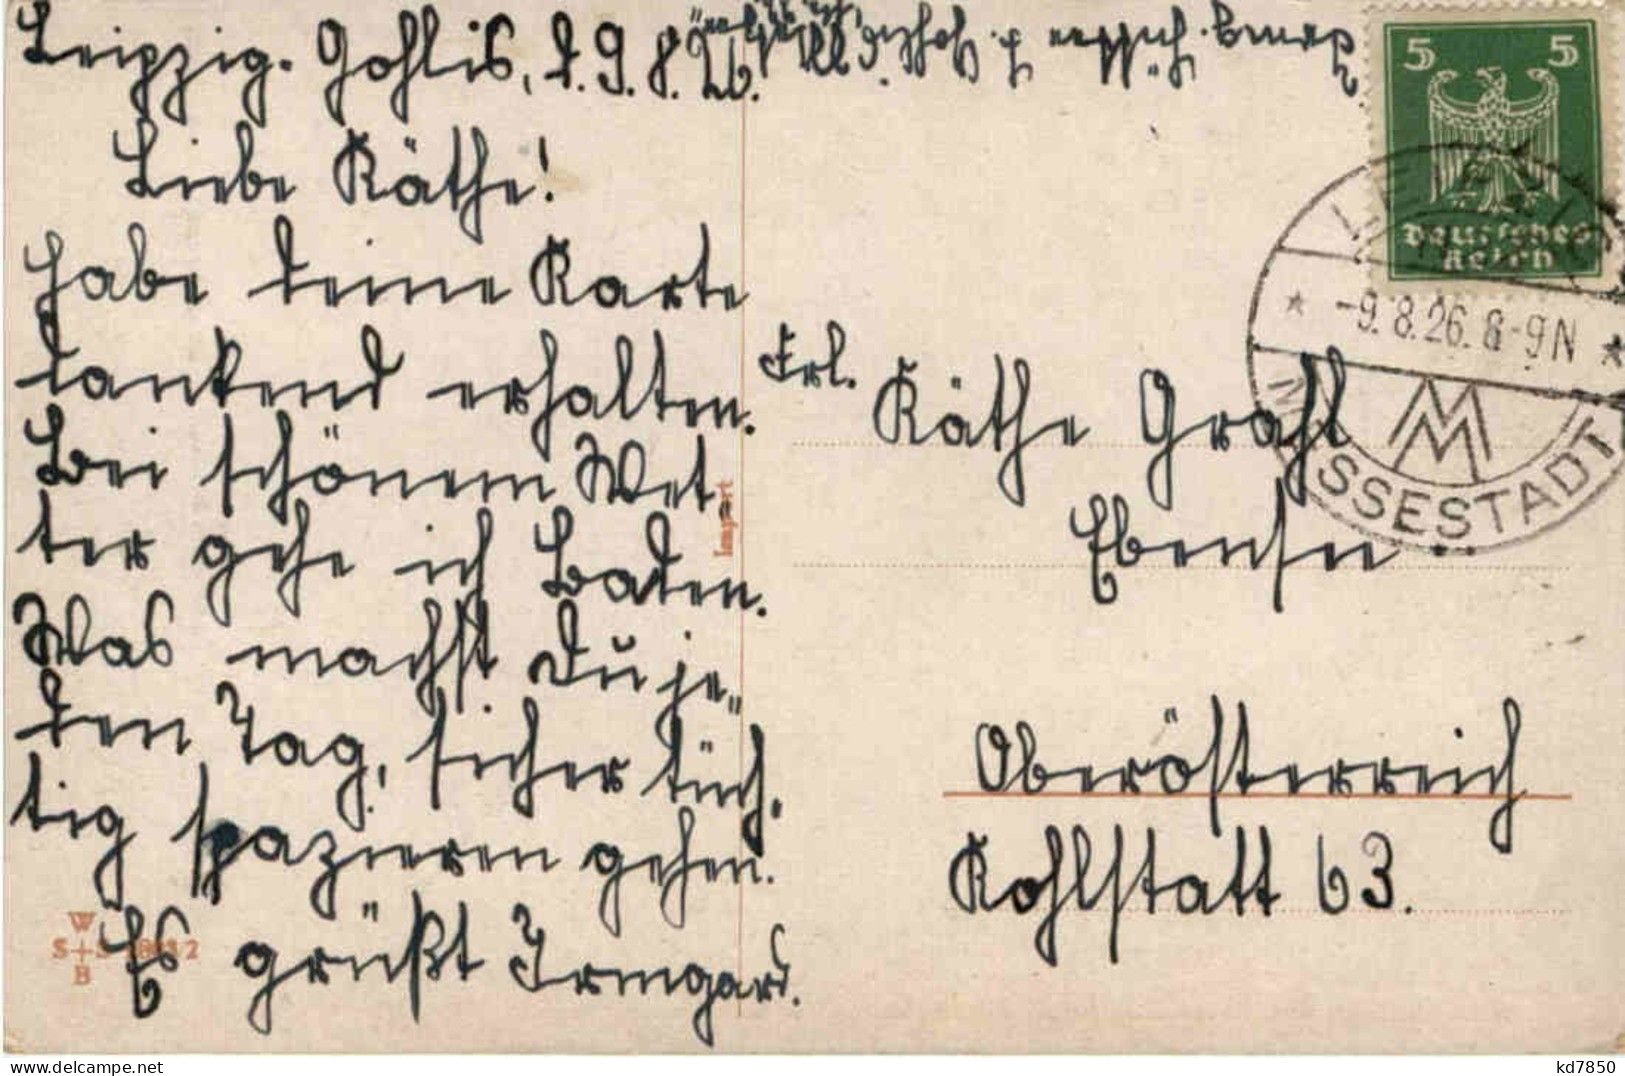 Leipzig-Gohlis, d. 9.8.26.
Liebe Käthe!
Habe deine Karte
dankend erhalten.
Bei schönem Wet„
ter gehe ich Baden.
Was machst Du je„
den Tag, sicher tüch„
tig spazieren gehen.
Es grüßt Irmgard.
Import
W
S+S
B
Frl. Käthe Grahl
Ebensee
Oberösterreich
Kohlstatt 63.
5 5
Deutsches
Reich
LEIPZIG
* -9.8.26. 8-9N *
MM
MESSESTADT